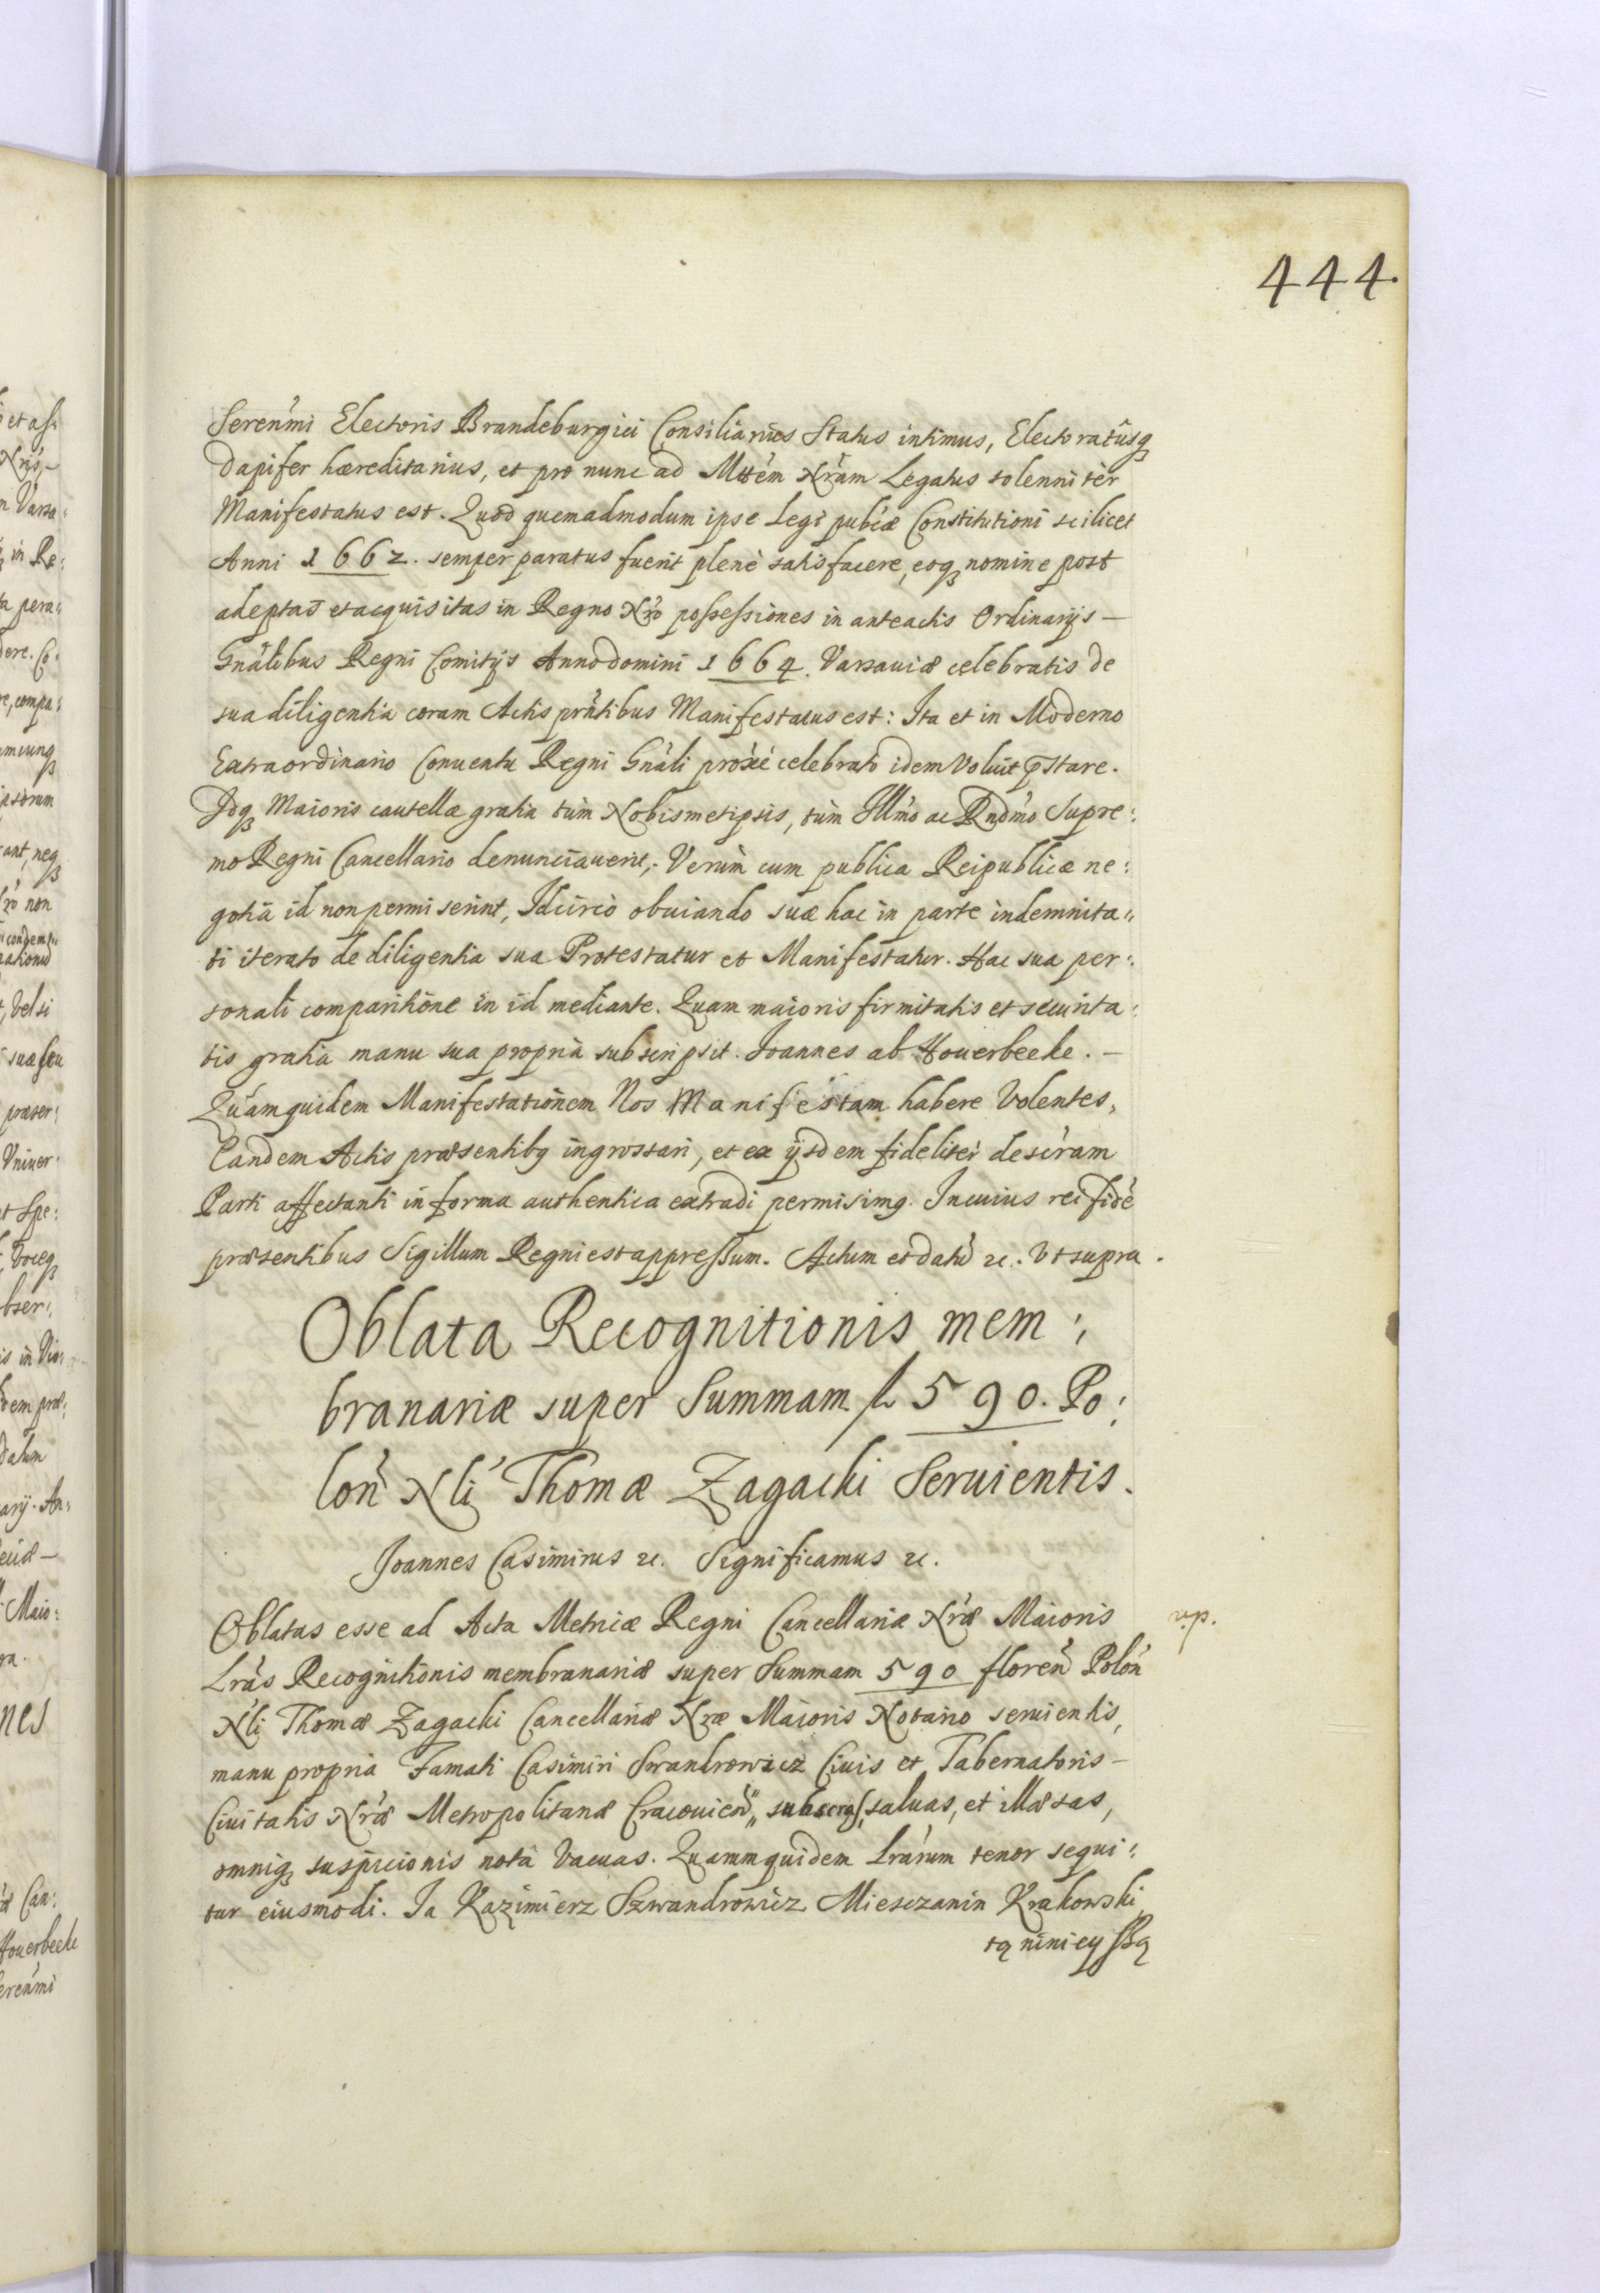 444.
Serenm̃i Electoris Brandeburgici Consiliarius Status intimus, Electoratûsq̃
Dapifer hæreditarius, et pro nunc ad Mttẽm Nrãm Legatus solenniter
Manifestatus est. Quod quemadmodum ipse Legi publ̃æ Constitutioni scilicet
Anni 1662. semper paratus fuerit plenè satisfacere, eoq̃ nomine post
adeptas et acquisitas in Regno Nrõ possessiones in anteactis Ordinarijs –
Gnãlibus Regni Comitijs Anno domini 1664. Varsauiæ celebratis de
sua diligentia coram Actis prñtibus Manifestatus est: Ita et in Moderno
Extraordinario Conuentu Regni Gnãli proxé celebrato idem Voluit p̃stare.
Idq̃ Maioris cautellæ gratia tùm Nobismetipsis, tùm Illm̃o ac Rndm̃o Supre:
mo Regni Cancellario denunciauerit,. Verùm cum publica Reipublicæ ne:
gotia id non permiserint, Idcircò obuiando suæ hac in parte indemnita„
ti iterato de diligentia sua Protestatur et Manifestatur. Hac sua per:
sonali comparitione in id mediante. Quam maioris firmitatis et securita:
tis gratia manu sua propria subscripsit. Joannes ab Houerbecke. –
Quamquidem Manifestationem Nos Manifestam habere Volentes,
Eandem Actis præsentibq̃ ingrossari, et ex ijsdem fideliter descr̃am
Parti affectanti in forma authentica extradi permisimq̃. In cuius rei fidẽ
præsentibus Sigillum Regni est appressum. Actum et datũ &c. Vt supra.
Oblata Recognitionis mem:
branariæ super Summam fl 590. Po:
lon̄ Nli Thomæ Zagacki Seruientis.
Joannes Casimirus &c. Significamus &c.
Oblatas esse ad Acta Metricæ Regni Cancellariæ Nrǣ Maioris
Lrãs Recognitionis membranariæ super Summam 590 floren̄ Polon̄
Nli Thomæ Zagacki Cancellariæ Nræ Maioris Notario seruientis,
manu propria Famati Casimiri Swandrowicz Ciuis et Tabernatoris –
Ciuitatis Nrǣ Metropolitanæ Cracouien̄„ saluas, et illæsas,
omniq̃ suspicionis notâ Vacuas. Quamquidem Lrãrum tenor sequi:
tur eiusmodi. Ja Kazimierz Szwandrowicz Miesczanin Krakowski
tą ninieyssą